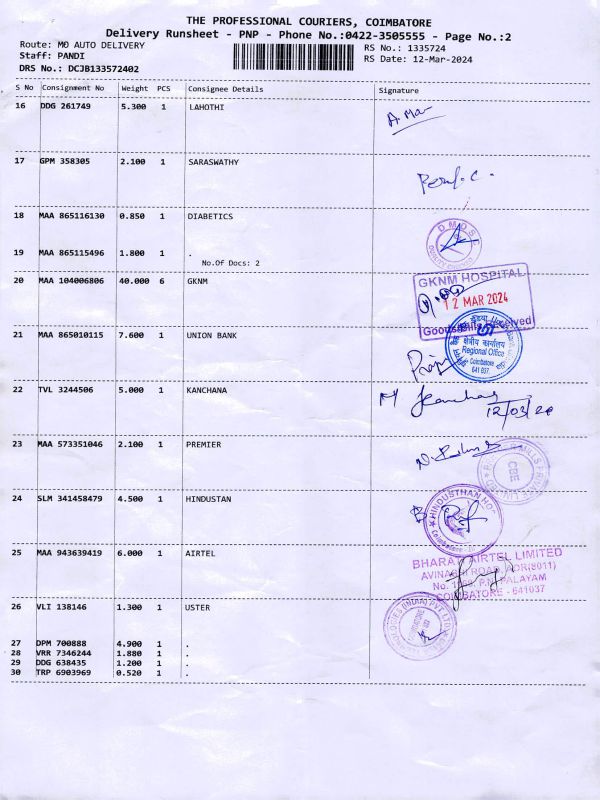 THE PROFESSIONAL COURIERS, COIMBATORE
Delivery Runsheet - PNP - Phone No.:0422-3505555 - Page No.:2
Route: M0 AUTO DELIVERY RS No.: 1335724
Staff: PANDI RS Date: 12-Mar-2024
DRS No.: DCJB133572402
S No Consignment No Weight PCS Consignee Details Signature
16 DDG 261749 5.300 1 LAHOTHI
17 GPM 358305 2.100 1 SARASWATHY
18 MAA 865116130 0.850 1 DIABETICS
19 MAA 865115496 1.800 1 .
No.Of Docs: 2
20 MAA 104006806 40.000 6 GKNM
GKNM HOSPITAL
12 MAR 2024
21 MAA 865010115 7.600 1 UNION BANK
क्षेत्रीय कार्यालय
Regional Office
Coimbatore
641 037
22 TVL 3244506 5.000 1 KANCHANA
23 MAA 573351046 2.100 1 PREMIER
CBE
24 SLM 341458479 4.500 1 HINDUSTAN
HINDUSTHAN HO
25 MAA 943639419 6.000 1 AIRTEL
BHARTI AIRTEL LIMITED
AVINASHI ROAD
COIMBATORE - 641037
26 VLI 138146 1.300 1 USTER
27 DPM 700888 4.900 1 .
28 VRR 7346244 1.880 1 .
29 DDG 638435 1.200 1 .
30 TRP 6903969 0.520 1 .